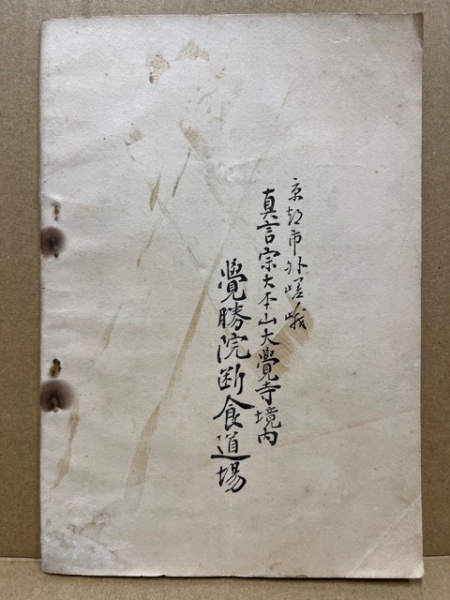 京都市外嵯峨
真言宗大本山大覺寺境内
覺勝院断食道場